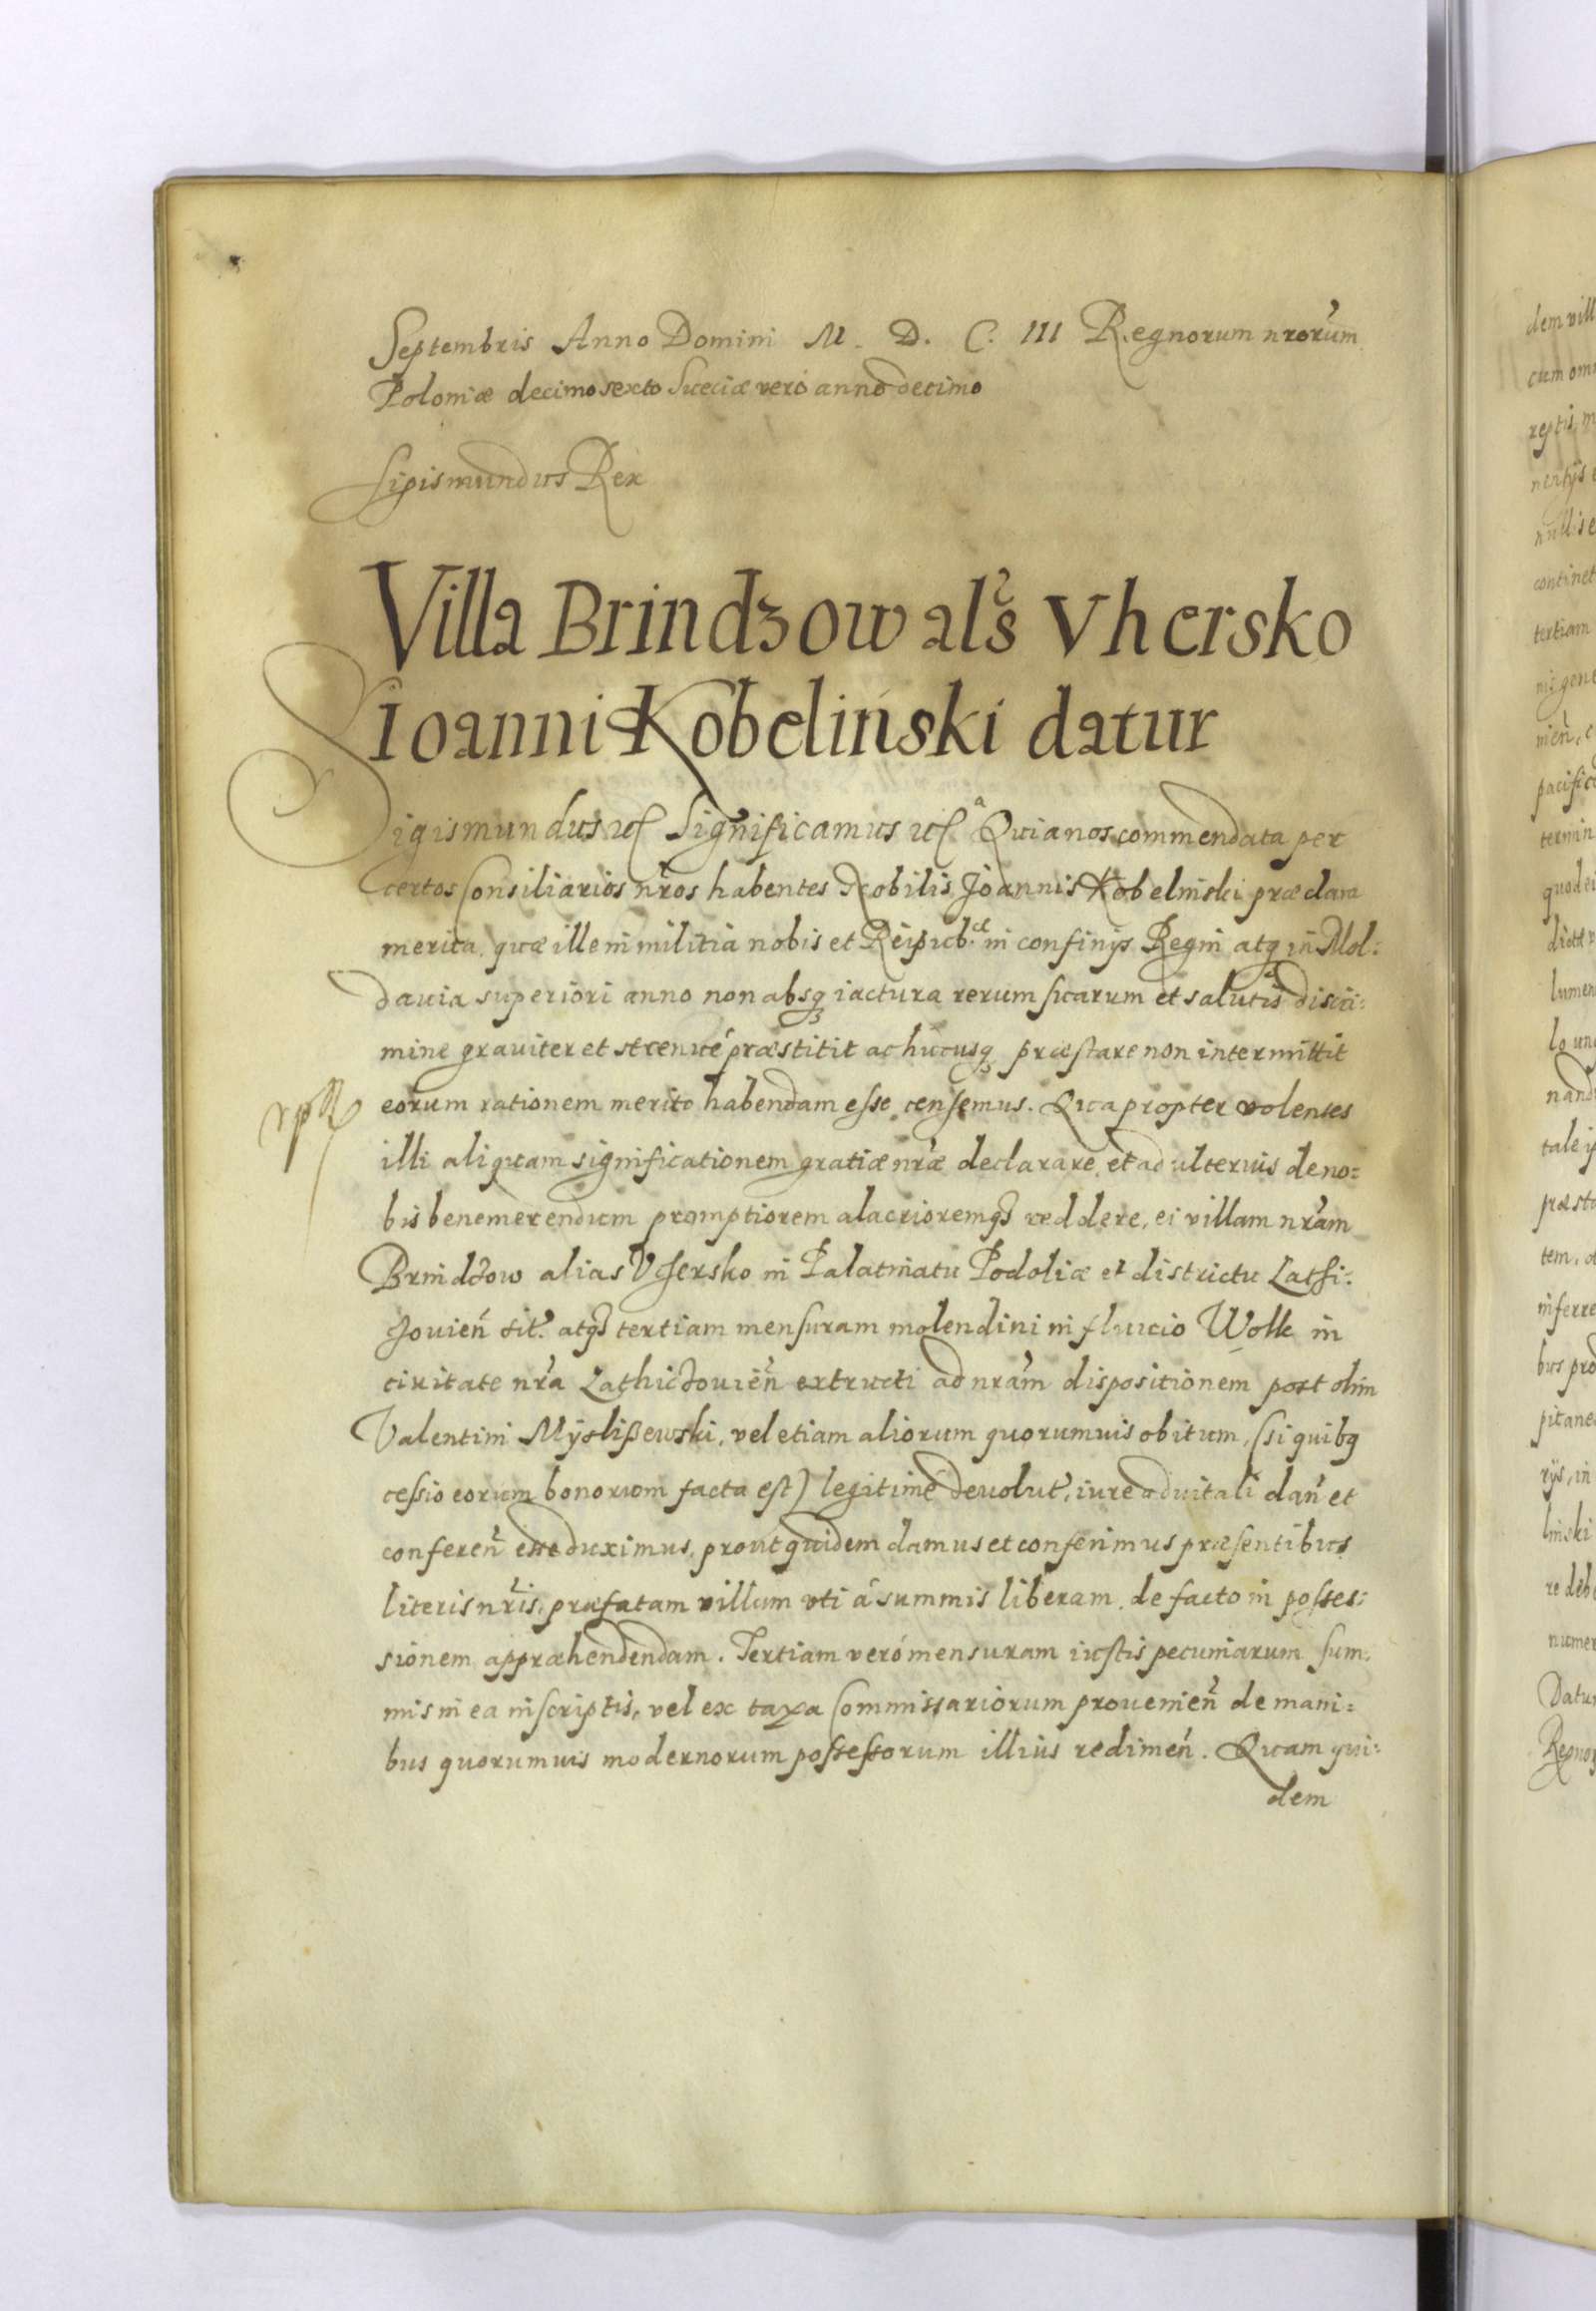 Septembris Anno Domini M. D. C. III Regnorum nrorum
Poloniæ decimo sexto Sueciæ vero anno decimo
Sigismundus Rex
Villa Brindzow als Vhersko
Ioanni Kobeliński datur
Sigismundus etc Significamus etc Quia nos commendata per
certos Consiliarios nros habentes Nobilis Joannis Kobelinski præclara
merita, quæ ille in militia nobis et Reipub. in confinijs Regni atq in Mol:
dauia superiori anno non absq iactura rerum suarum et salutis discri:
mine grauiter et strenué præstitit ac hucusq præstare non intermittit
eorum rationem merito habendam esse censemus. Quapropter volentes
illi aliquam significationem gratiæ nræ declarare, et ad ulterius de no:
bis benemerendum promptiorem alacrioremq reddere, ei villam nram
Brindzow alias Vhersko in Palatinatu Podoliæ et districtu Lathi:
zouień sit. atq tertiam mensuram molendini in fluuio Wolk in
ciuitate nra Lathiczouień extructi ad nram dispositionem post olim
Valentini Myslißewski, vel etiam aliorum quorumuis obitum, (si quibq
cessio eorum bonorum facta est) legitimé deuolut, iure aduitali dań et
confereń esse duximus, prout quidem damus et conferimus præsentibus
literis nris, præfatam villam vti á summis liberam, de facto in posses:
sionem appræhendendam. Tertiam veró mensuram iustis pecuniarum sum:
mis in ea inscriptis, vel ex taxa Commissariorum prouenień de mani:
bus quorumuis modernorum possessorum illius redimeń. Quam qui:
dem